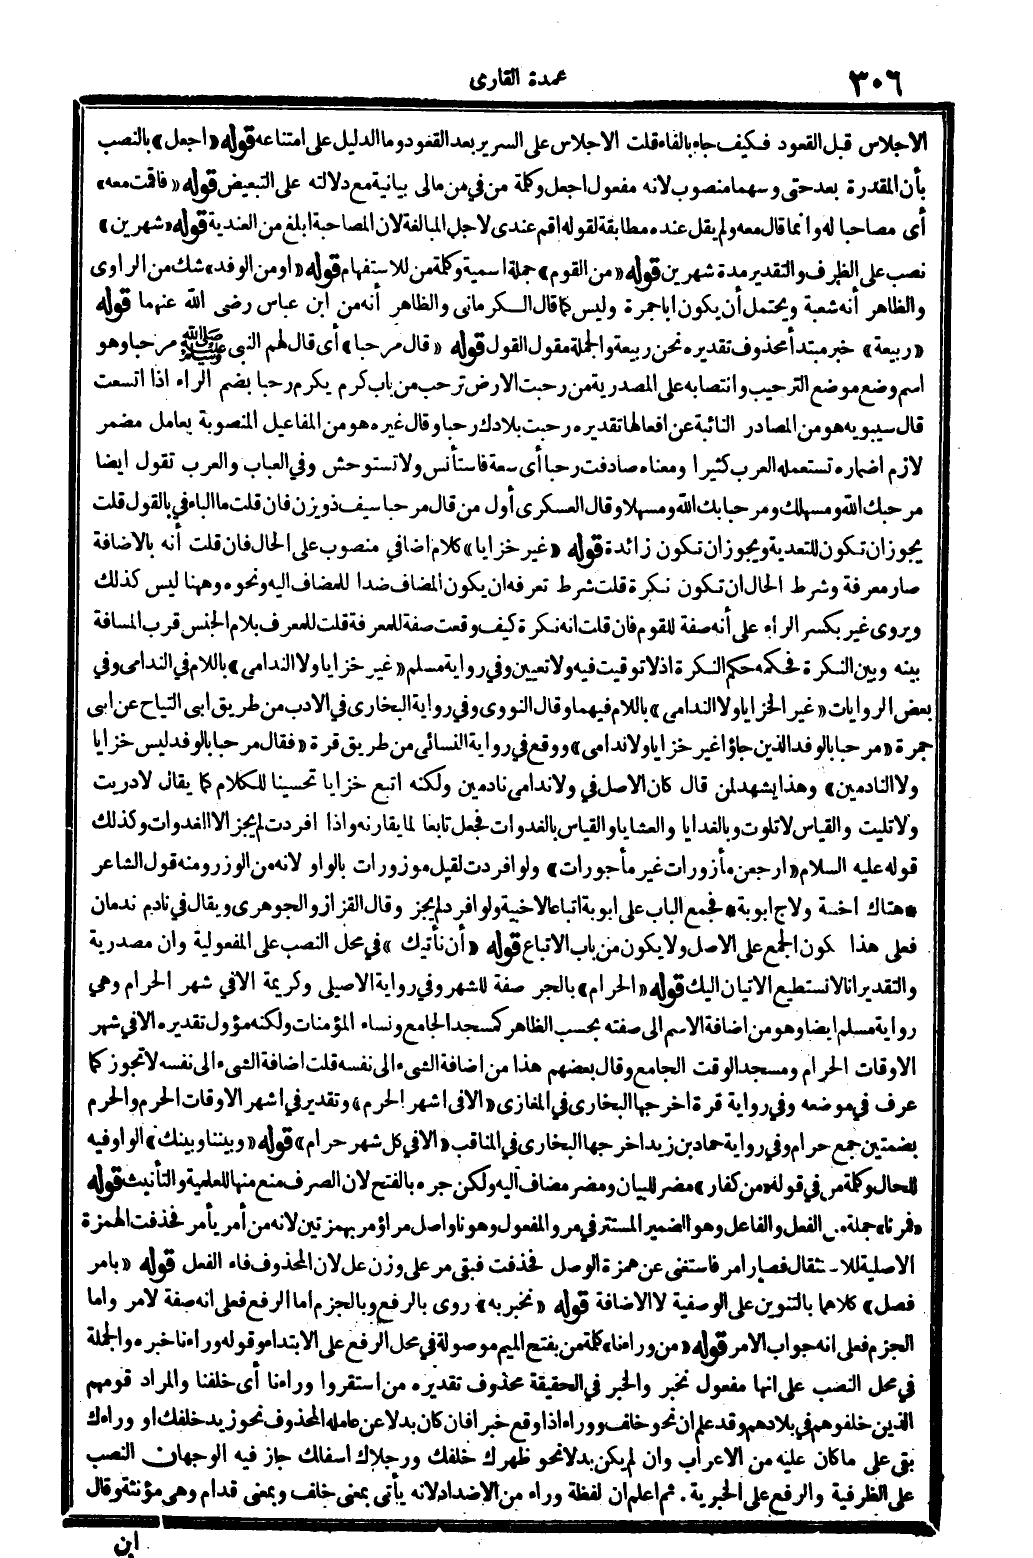 ٣٠٦
عمدة القارى
الاجلاس قبل القعود فكيف جاء بالفاء قلت الاجلاس على السرير بعد القعود وما الدليل على امتناعه قوله «اجعل» بالنصب
بأن المقدرة بعد حتى وسهما منصوب لانه مفعول اجعل وكلمة من في من مالى بيانية مع دلالته على التبعيض قوله «فاقمت معه»
أى مصاحبا له وانما قال معه ولم يقل عنده مطابقة لقوله اقم عندى لاجل المبالغة لان المصاحبة ابلغ من العندية قوله «شهرين»
نصب على الظرف والتقدير مدة شهرين قوله «من القوم» جملة اسمية وكلمة من للاستفهام قوله «او من الوفد» شك من الراوى
والظاهر أنه شعبة ويحتمل أن يكون ابا جمرة وليس كما قال الكرمانى والظاهر أنه من ابن عباس رضى الله عنهما قوله
«ربيعة» خبر مبتدأ محذوف تقديره نحن ربيعة والجملة مقول القول قوله «قال مرحبا» أى قال لهم النبى ﷺ مرحبا وهو
اسم وضع موضع الترحيب وانتصابه على المصدرية من رحبت الارض ترحب من باب كرم يكرم رحبا بضم الراء اذا اتسعت
قال سيبويه هو من المصادر النائبة عن افعالها تقديره رحبت بلادك رحبا وقال غيره هو من المفاعيل المنصوبة بعامل مضمر
لازم اضماره تستعمله العرب كثيرا ومعناه صادفت رحبا أى سعة فاستأنس ولا تستوحش وفي العباب والعرب تقول ايضا
مرحبك الله ومسهلك ومرحبا بك الله ومسهلا وقال العسكرى أول من قال مرحبا سيف ذو يزن فان قلت ما الباء في بالقول قلت
يجوز ان تكون للتعدية ويجوز ان تكون زائدة قوله «غير خزايا» كلام اضافي منصوب على الحال فان قلت أنه بالاضافة
صار معرفة وشرط الحال ان تكون نكرة قلت شرط تعرفه ان يكون المضاف ضدا للمضاف اليه ونحوه وههنا ليس كذلك
ويروى غير بكسر الراء على أنه صفة للقوم فان قلت انه نكرة كيف وقعت صفة للمعرفة قلت للمعرف بلام الجنس قرب المسافة
بينه وبين النكرة فحكمه حكم النكرة اذ لا توقيت فيه ولا تعيين وفي رواية مسلم «غير خزايا ولا الندامى» باللام في الندامى وفي
بعض الروايات «غير الخزايا ولا الندامى» باللام فيهما وقال النووى وفي رواية البخارى في الادب من طريق ابى التياح عن ابى
جمرة «مرحبا بالوفد الذين جاؤا غير خزايا ولا ندامى» ووقع في رواية النسائى من طريق قرة «فقال مرحبا بالوفد ليس خزايا
ولا النادمين» وهذا يشهد لمن قال كان الاصل في ولا ندامى نادمين ولكنه اتبع خزايا تحسينا للكلام كما يقال لا دريت
ولا تليت والقياس لا تلوت وبالغدايا والعشايا والقياس بالغدوات فجعل تابعا لما يقارنه واذا افردت لم يجز الا الغدوات وكذلك
قوله عليه السلام «ارجعن مأزورات غير مأجورات» ولو افردت لقيل موزورات بالواو لانه من الوزر ومنه قول الشاعر
* هتاك اخبية ولاج ابوبة * فجمع الباب على ابوبة اتباعا لاخبية ولو افرد لم يجز وقال القزاز والجوهرى ويقال في نادم ندمان
فعلى هذا يكون الجمع على الاصل ولا يكون من باب الاتباع قوله «أن نأتيك» في محل النصب على المفعولية وان مصدرية
والتقدير انا لا نستطيع الاتيان اليك قوله «الحرام» بالجر صفة للشهر وفي رواية الاصيلى وكريمة الا في شهر الحرام وهي
رواية مسلم ايضا وهو من اضافة الاسم الى صفته بحسب الظاهر كمسجد الجامع ونساء المؤمنات ولكنه مؤول تقديره الا في شهر
الاوقات الحرام ومسجد الوقت الجامع وقال بعضهم هذا من اضافة الشيء الى نفسه قلت اضافة الشيء الى نفسه لا تجوز كما
عرف في موضعه وفي رواية قرة اخرجها البخارى في المغازى «الا في اشهر الحرم» وتقدير في اشهر الاوقات الحرم والحرم
بضمتين جمع حرام وفي رواية حماد بن زيد اخرجها البخارى في المناقب «الا في كل شهر حرام» قوله «وبيننا وبينك» الواو فيه
للحال وكلمة من في قوله «من كفار» مضر للبيان ومضر مضاف اليه ولكن جره بالفتح لان الصرف منع منها للعلمية والتأنيث قوله
«فمرنا» جملة من الفعل والفاعل وهو الضمير المستتر في مر والمفعول وهو نا واصل مر اؤمر بهمزتين لانه من أمر يأمر فحذفت الهمزة
الاصلية للاستثقال فصار امر فاستغنى عن همزة الوصل فحذفت فبقى مر على وزن عل لان المحذوف فاء الفعل قوله «بامر
فصل» كلاهما بالتنوين على الوصفية لا الاضافة قوله «نخبر به» روى بالرفع وبالجزم اما الرفع فعلى انه صفة لامر واما
الجزم فعلى انه جواب الامر قوله «من وراءنا» كلمة من بفتح الميم موصولة في محل الرفع على الابتداء وقوله وراءنا خبره والجملة
في محل النصب على انها مفعول نخبر والخبر في الحقيقة محذوف تقديره من استقروا وراءنا أى خلفنا والمراد قومهم
الذين خلفوهم في بلادهم وقد علم ان نحو خلف ووراء اذا وقع خبرا فان كان بدلا عن عامله المحذوف نحو زيد خلفك او وراءك
بقى على ما كان عليه من الاعراب وان لم يكن بدلا نحو ظهرك خلفك ورجلاك اسفلك جاز فيه الوجهان النصب
على الظرفية والرفع على الخبرية . ثم اعلم ان لفظة وراء من الاضداد لانه يأتى بمعنى خلف وبمعنى قدام وهى مؤنثة وقال
ابن